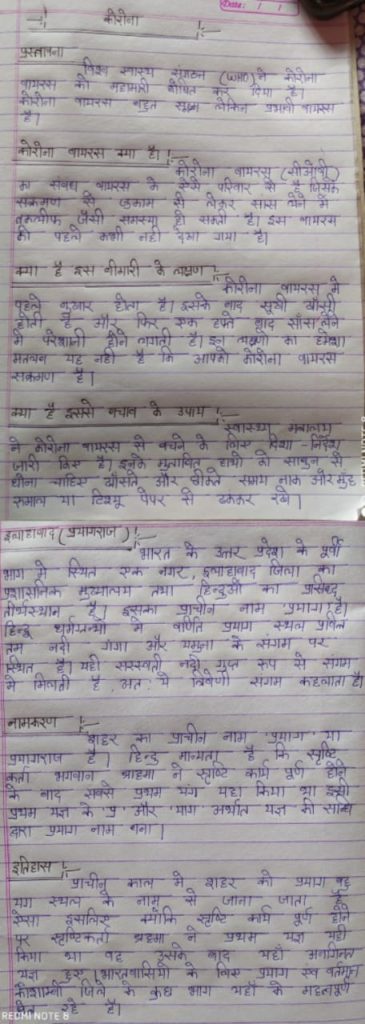 Date: / /
कोरोना
प्रस्तावना
विश्व स्वास्थ्य संगठन (WHO) ने कोरोना
वायरस को महामारी घोषित कर दिया है।
कोरोना वायरस बहुत सूक्ष्म लेकिन प्रभावी वायरस
है।
कोरोना वायरस क्या है।
कोरोना वायरस (सीओवी)
का संबंध वायरस के ऐसे परिवार से है जिसके
संक्रमण से जुकाम से लेकर सांस लेने में
तकलीफ जैसी समस्या हो सकती है। इस वायरस
को पहले कभी नही देखा गया है।
क्या है इस बीमारी के लक्षण
कोरोना वायरस में
पहले बुखार होता है। इसके बाद सूखी खाँसी
होती है और फिर एक हफ्ते बाद साँस लेने
में परेशानी होने लगती है। इन लक्षणों का हमेशा
मतलब यह नही है कि आपको कोरोना वायरस
संक्रमण है।
क्या है इससे बचाव के उपाय
स्वास्थ्य मंत्रालय
ने कोरोना वायरस से बचने के लिए दिशा-निर्देश
जारी किए है। इनके मुताबिक हाथो को साबुन से
धोना चाहिए खाँसते और छीकते समय नाक और मुँह
रूमाल या टिश्यू पेपर से ढककर रखे।
इलाहाबाद (प्रयागराज)
भारत के उत्तर प्रदेश के पूर्वी
भाग में स्थित एक नगर, इलाहाबाद जिला का
प्रशासनिक मुख्यालय तथा हिन्दुओं का प्रसिद्ध
तीर्थस्थान है। इसका प्राचीन नाम प्रयाग है।
हिन्दू धर्मग्रन्थो में वर्णित प्रयाग स्थल पवित्र
तम नदी गंगा और यमुना के संगम पर
स्थित है। यही सरस्वती नदी गुप्त रूप से संगम
मे मिलती है, अतः ये त्रिवेणी संगम कहलाता है।
नामकरण
शहर का प्राचीन नाम 'प्रयाग' या
प्रयागराज है। हिन्दू मान्यता है कि सृष्टि
कर्ता भगवान ब्रहमा ने सृष्टि कार्य पूर्ण होने
के बाद सबसे प्रथम यहा किया था इसी
प्रथम यज्ञ के 'प्र' और 'याग' अर्थात यज्ञ की सन्धि
द्वारा प्रयाग नाम बना।
इतिहास
प्राचीन काल मे शहर को प्रयाग
स्थल के नाम से जाना जाता है
ऐसा इसलिए क्योंकि सृष्टि कार्य पूर्ण होने
पर सृष्टिकर्ता ब्रहमा ने प्रथम यज्ञ यही
किया था उसके बाद यहाँ अनगिनत
यज्ञ हुए। भारतवासियो के लिए प्रयाग एवं वर्तमान
कौशाम्बी जिले के कुछ भाग यहाँ के महत्वपूर्ण
रहे है।
REDMI NOTE 8